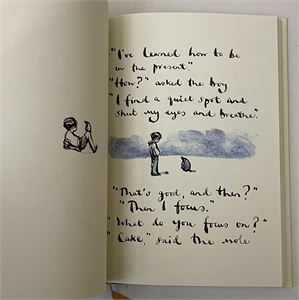 "I've learned how to be
in the present."
"How?" asked the boy
"I find a quiet spot and
shut my eyes and breathe."
"That's good, and then?"
"Then I focus."
"What do you focus on?"
"Cake," said the mole